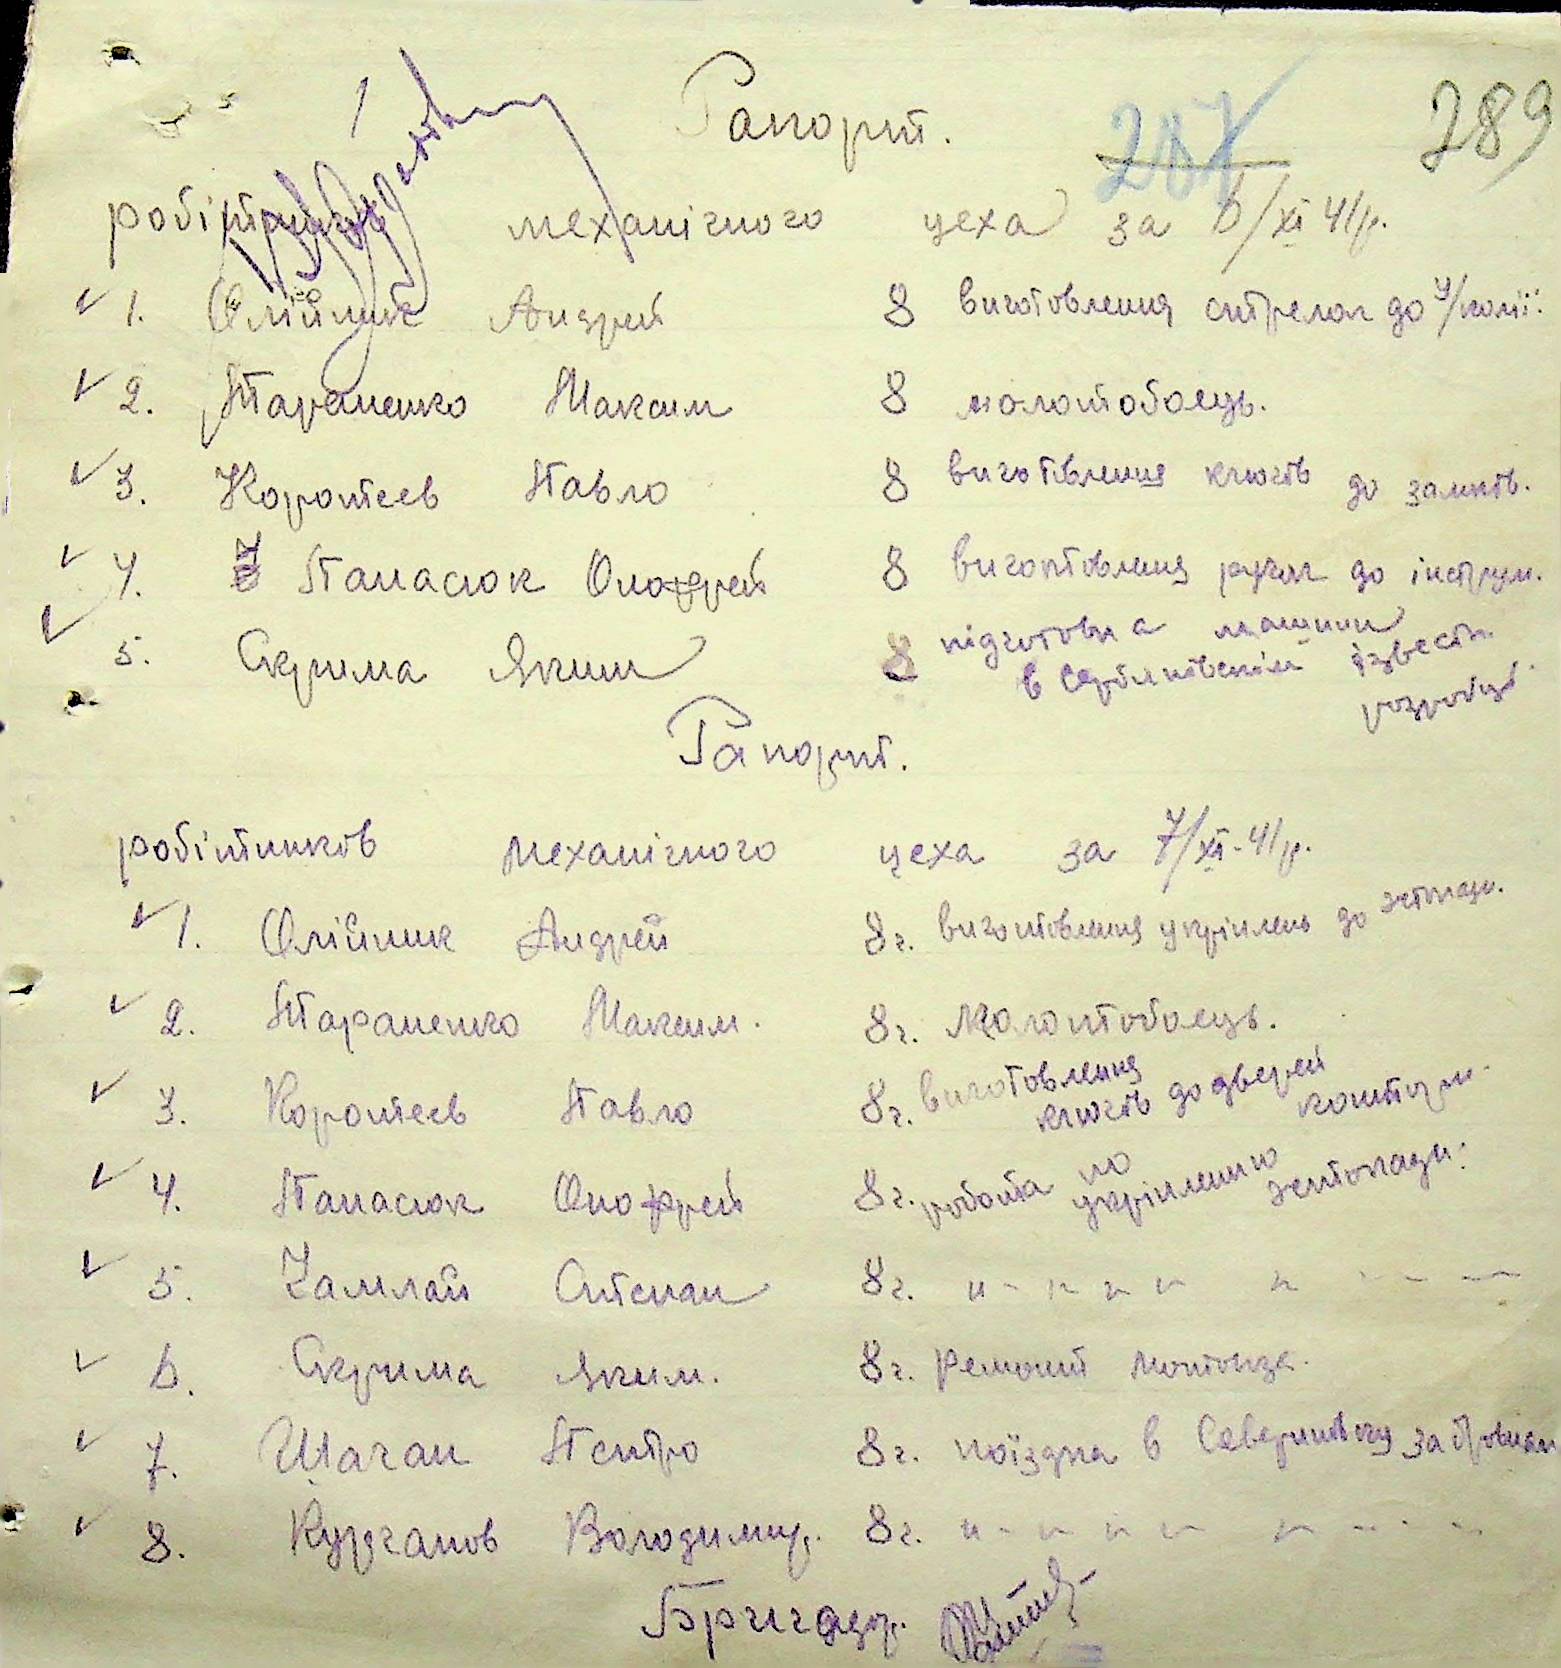 289
287
Рапорт.
робітників механічного цеха за 6/XI 41р.
1. Олійник Андрей 8 виготовлення стрелок до у/колії.
2. Тараненко Максим 8 молотобоець.
3. Коротеев Павло 8 виготівлення ключів до замків.
4. Панасюк Онофрей 8 виготовлення ручок до інструм.
5. Скрима Яким 8 підготовка машини
в ізвестк.
розробці.
Рапорт.
робітників механічного цеха за 7/XI-41р.
1. Олійник Андрей 8г. виготовлення укріплень до эстокади.
2. Тараненко Максим. 8г. Молотобоець.
3. Коротеев Павло 8г. виготовлення
ключів до дверей контори.
4. Панасюк Онофрей 8г. робота по
укріпленню эстокади.
5. Камлай Степан 8г. " - " " " " - - -
6. Скрима Яким. 8г. Ремонт
7. Шаган Петро 8г. поїздка в за дровами
8. Курганов Володимир. 8г. " - " " " " - - -
Бригадір.